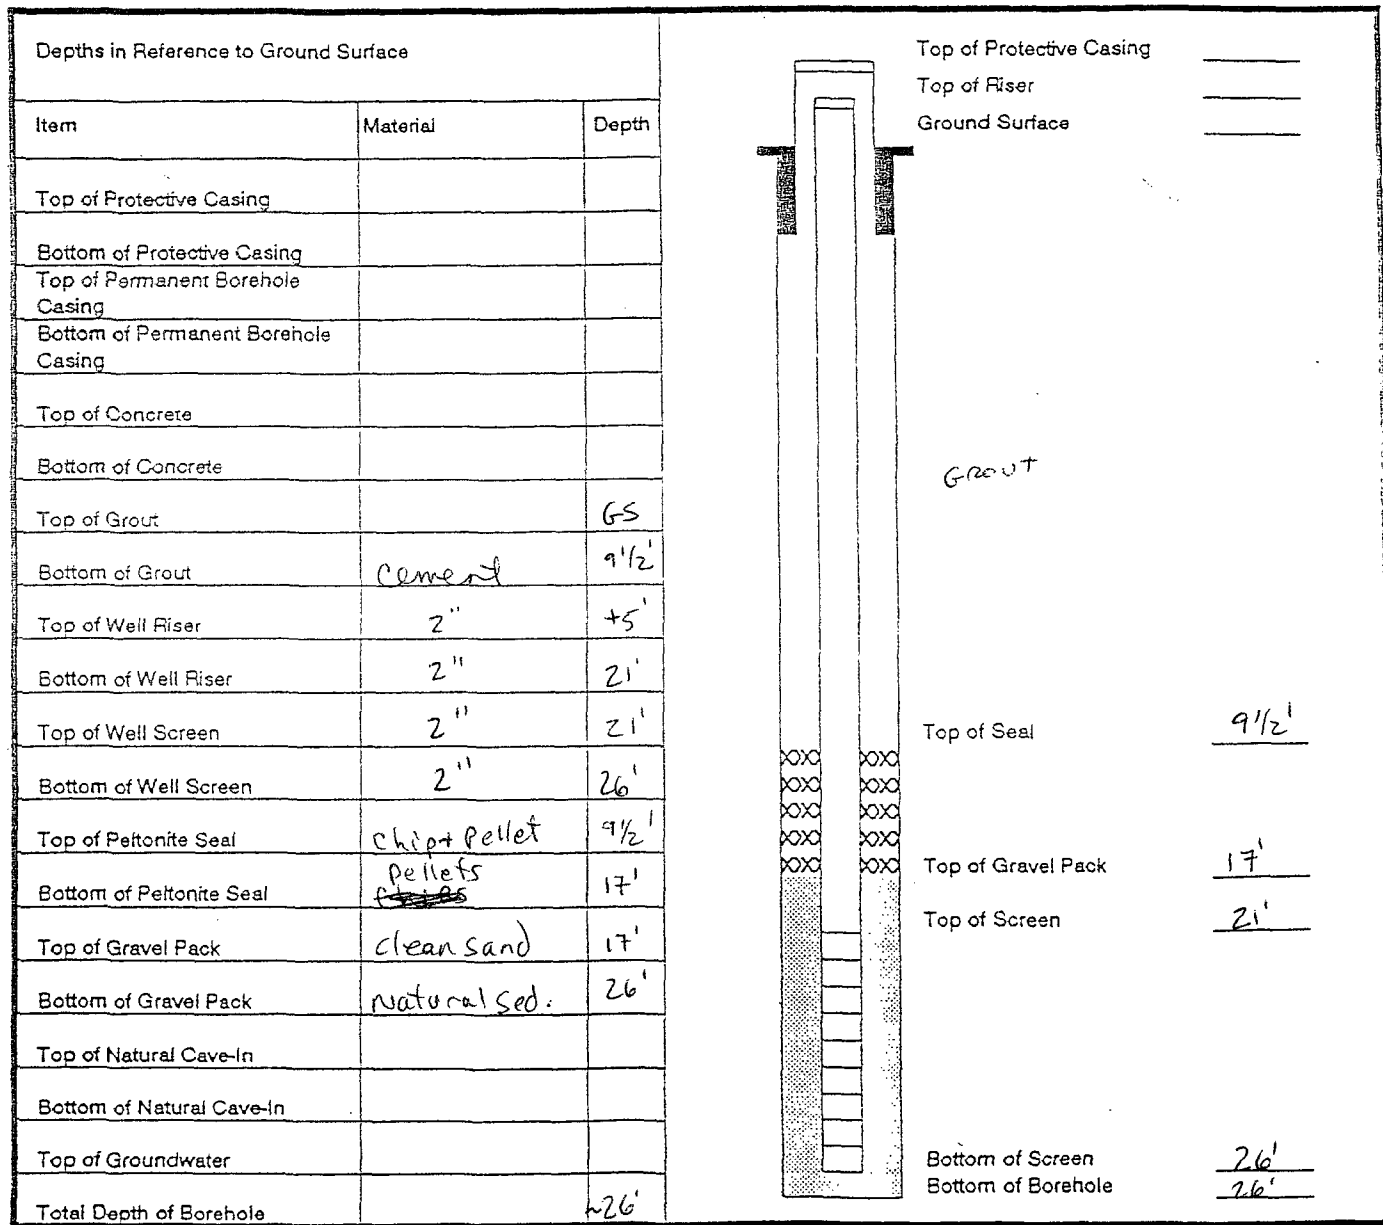 Depths in Reference to Ground Surface
Item Material Depth
Top of Protective Casing
Bottom of Protective Casing
Top of Permanent Borehole
Casing
Bottom of Permanent Borehole
Casing
Top of Concrete
Bottom of Concrete
Top of Grout GS
Bottom of Grout cement 9 1/2'
Top of Well Riser 2" +5'
Bottom of Well Riser 2" 21'
Top of Well Screen 2" 21'
Bottom of Well Screen 2" 26'
Top of Peltonite Seal Chip + Pellet 9 1/2'
Bottom of Peltonite Seal Pellets 17'
Top of Gravel Pack clean sand 17'
Bottom of Gravel Pack Natural Sed. 26'
Top of Natural Cave-In
Bottom of Natural Cave-In
Top of Groundwater
Total Depth of Borehole ~26'
Top of Protective Casing
Top of Riser
Ground Surface
GROUT
Top of Seal 9 1/2'
Top of Gravel Pack 17'
Top of Screen 21'
Bottom of Screen 26'
Bottom of Borehole 26'